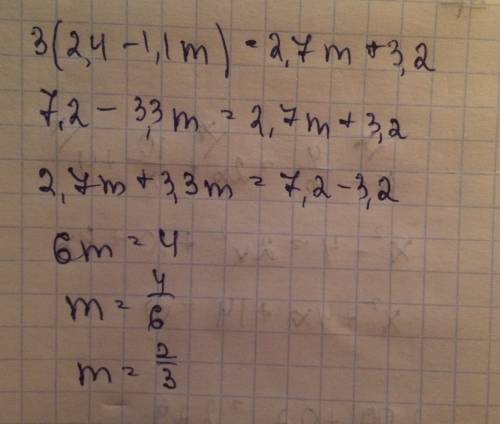 3(2,4 - 1,1m) = 2,7m + 3,2
7,2 - 3,3m = 2,7m + 3,2
2,7m + 3,3m = 7,2 - 3,2
6m = 4
m = 4/6
m = 2/3